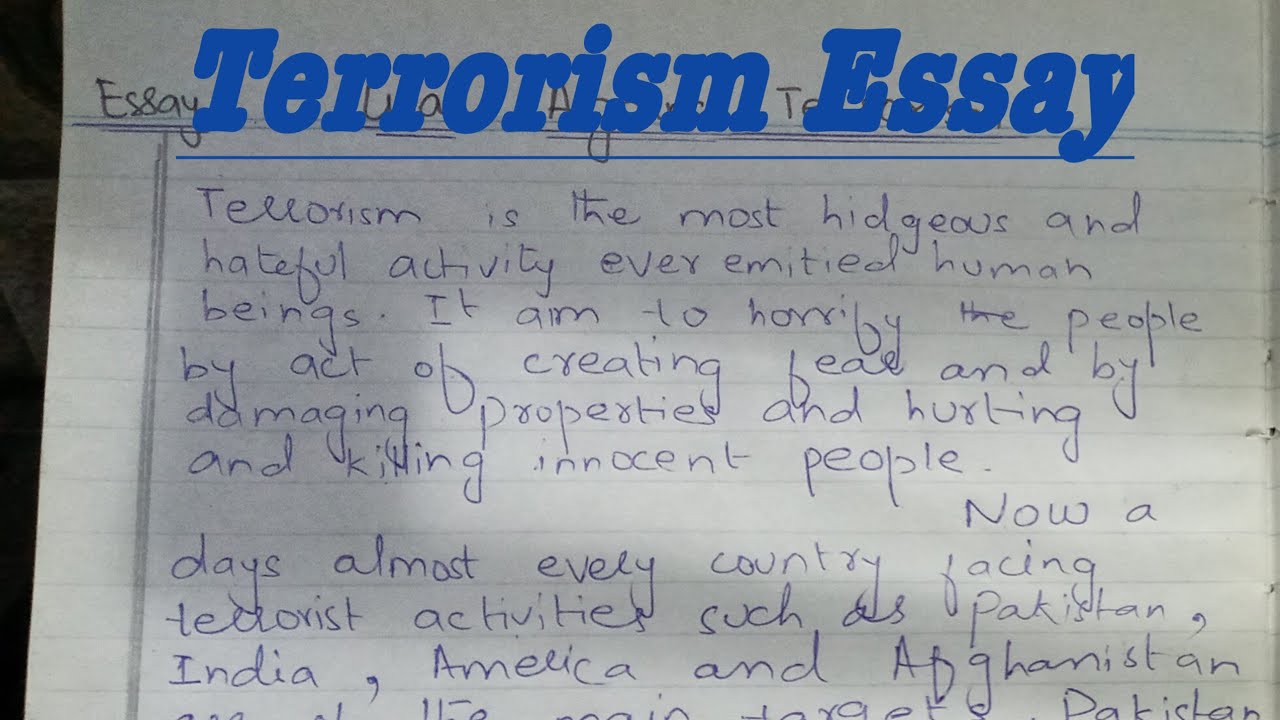 Terrorism Essay
Essay
Terrorism is the most hidgeous and
hateful activity ever emitied human
beings. It aim to horrify the people
by act of creating fear and by
damaging properties and hurting
and killing innocent people.
Now a
days almost every country facing
terrorist activities such as Pakistan,
India, America and Afghanistan
the main targets. Pakistan